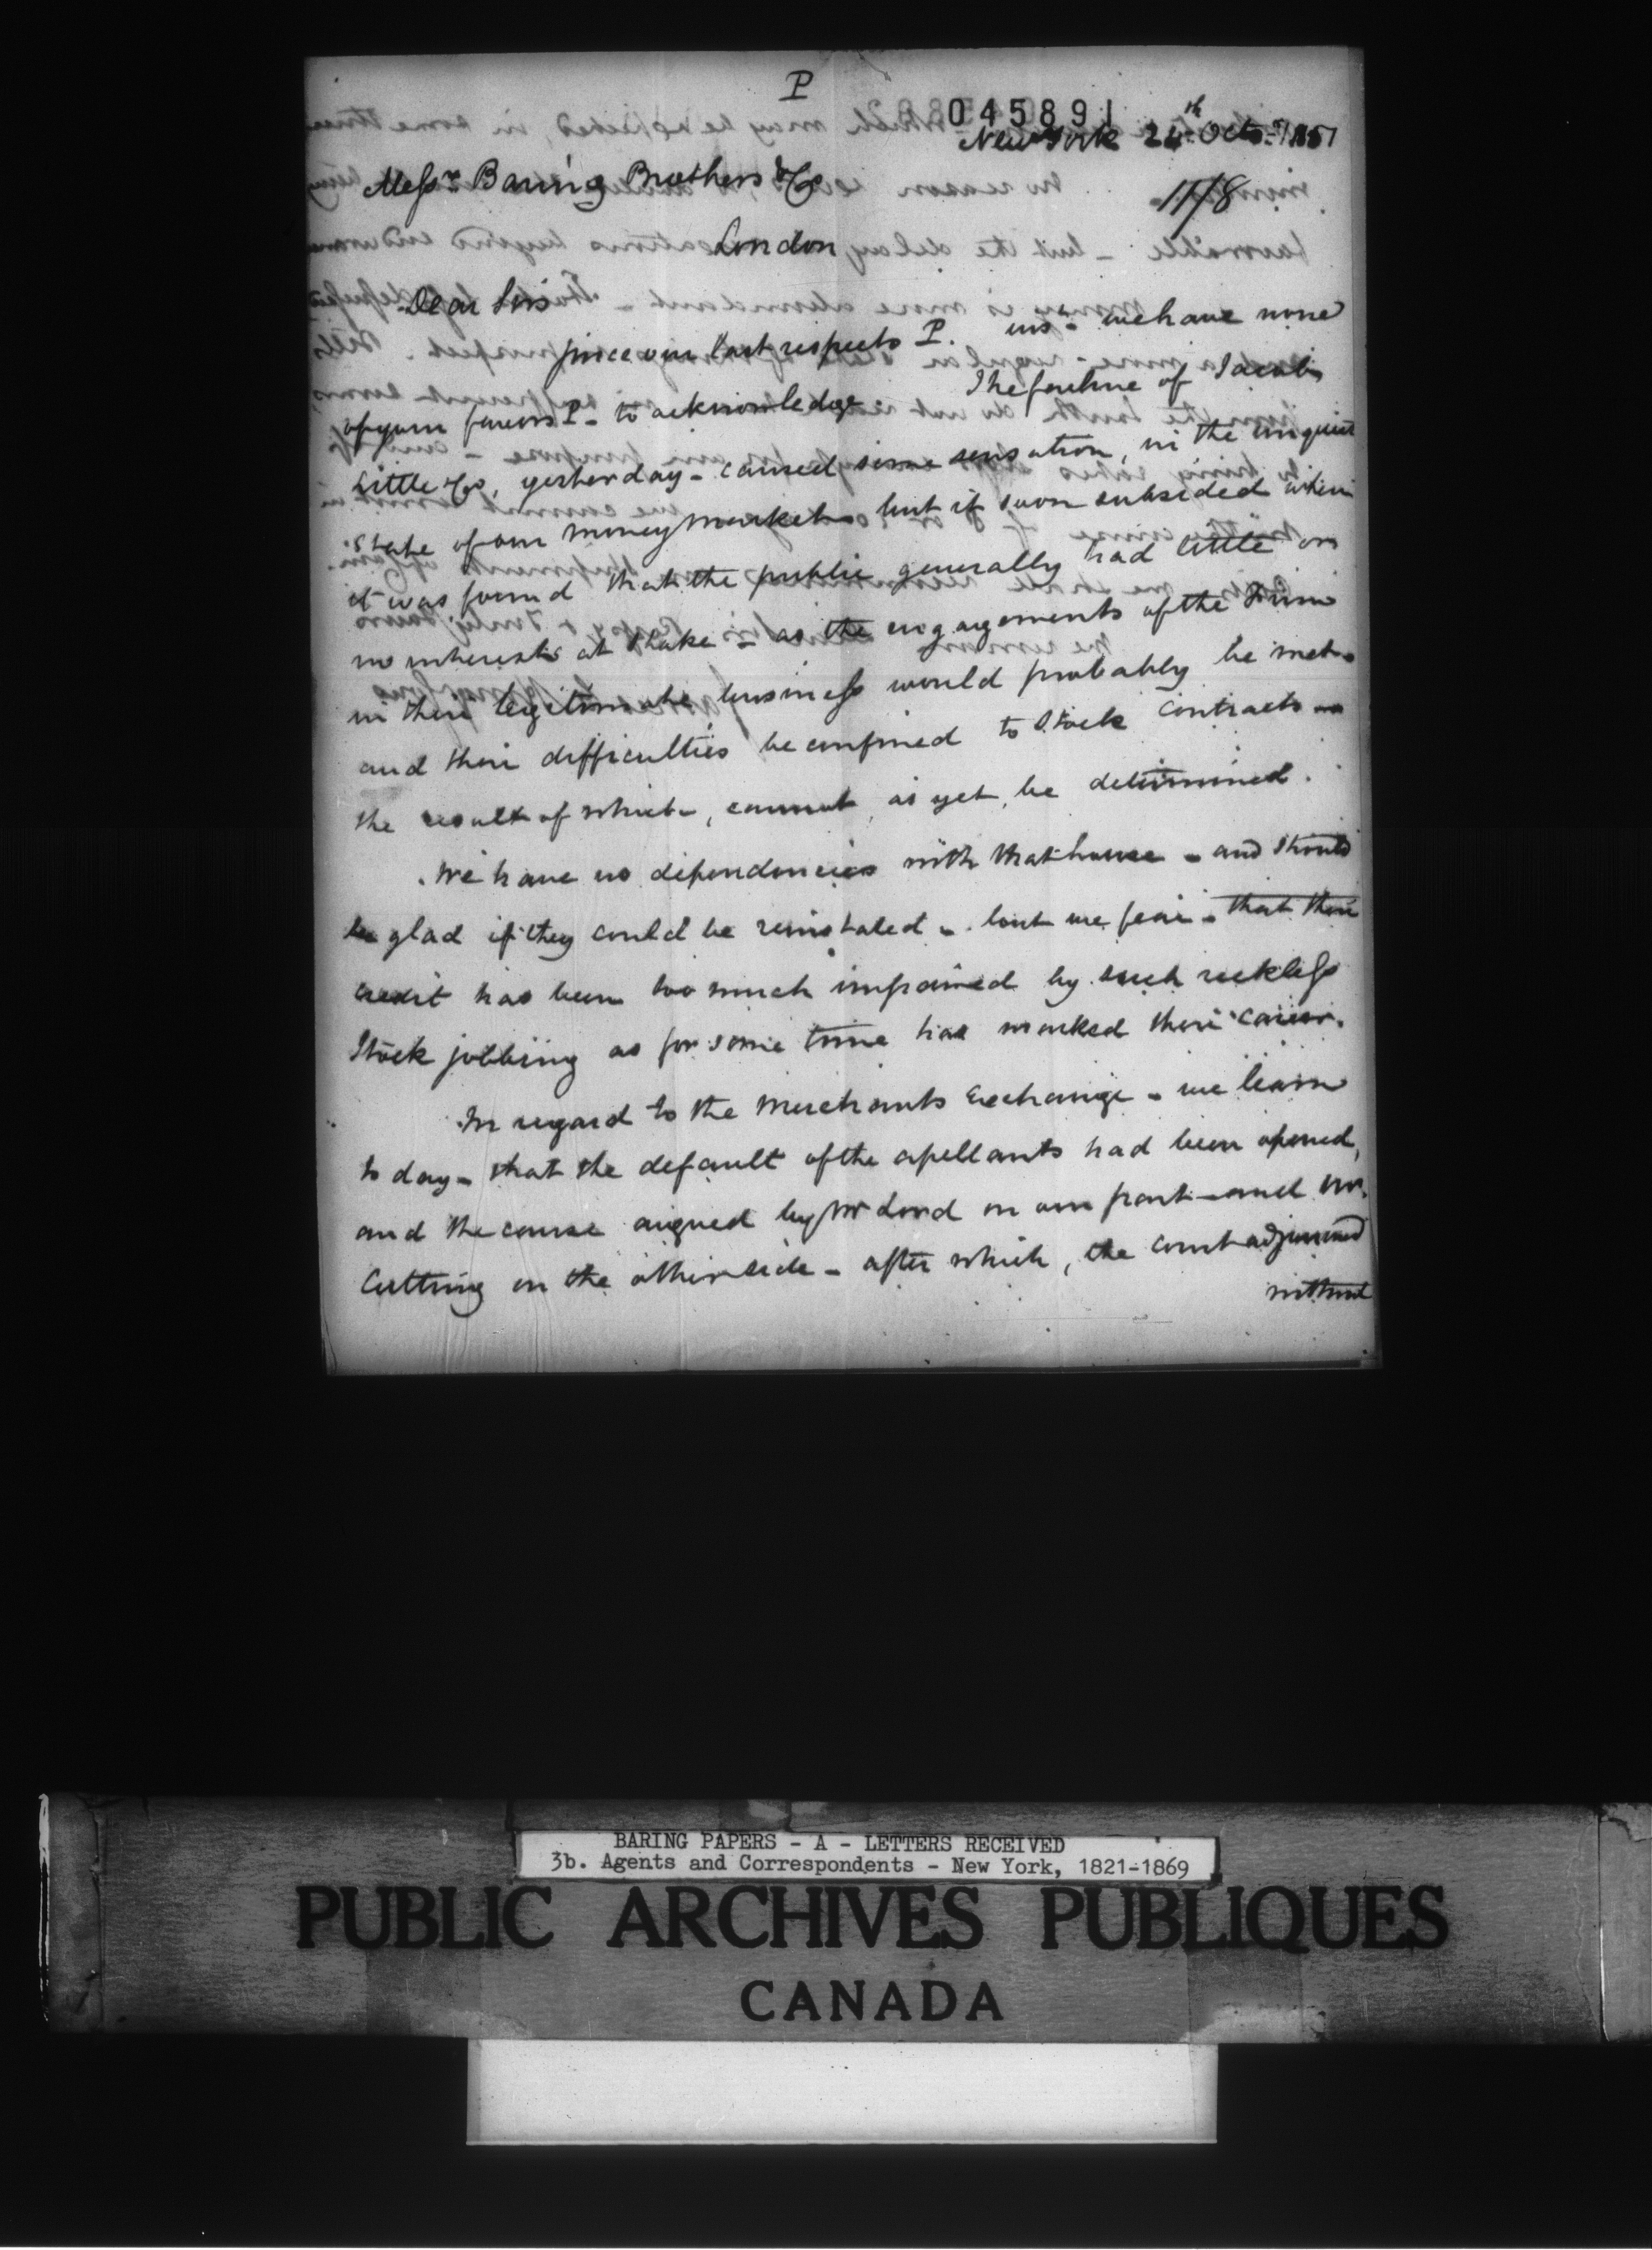 P
045891
New York 24th Octo. 1851
Messrs Baring Brothers & Co
11/8
London
Dear Sirs
Since our last respects P. we have none
of your favors P- to acknowledge. The failure of Jacob
Little & Co, yesterday - caused some sensation, in the unquiet
state of our money market but it soon subsided when
it was found that the public generally had little or
no interests at stake - as the engagements of the
in their legitimate business would probably be met
and their difficulties be confined to Stock Contracts -
the result of which, cannot as yet, be determined.
We have no dependencies with that house - and should
be glad if they could be reinstated - but we fear - that their
credit has been too much impaired by such reckless
Stock jobbing as for some time has marked their career.
In regard to the Merchants Exchange - we learn
to day - that the default of the apellants had been opened,
and the cause argued by Mr Lord on our part - and Mr.
Cutting on the other side - after which, the court adjourned
without
BARING PAPERS - A - LETTERS RECEIVED
3b. Agents and Correspondents - New York, 1821-1869
PUBLIC ARCHIVES PUBLIQUES
CANADA